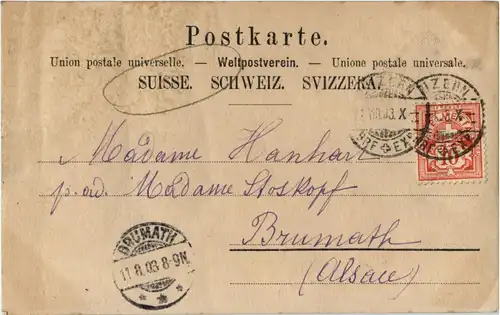 Postkarte.
Union postale universelle. — Weltpostverein. — Unione postale universale.
SUISSE. SCHWEIZ. SVIZZERA.
LUZERN
BRF EXP
10
Madame Hanhart
p. ad. Madame Stoskopf
Brumath
(Alsace)
BRUMATH
11.8.03.8-9N.